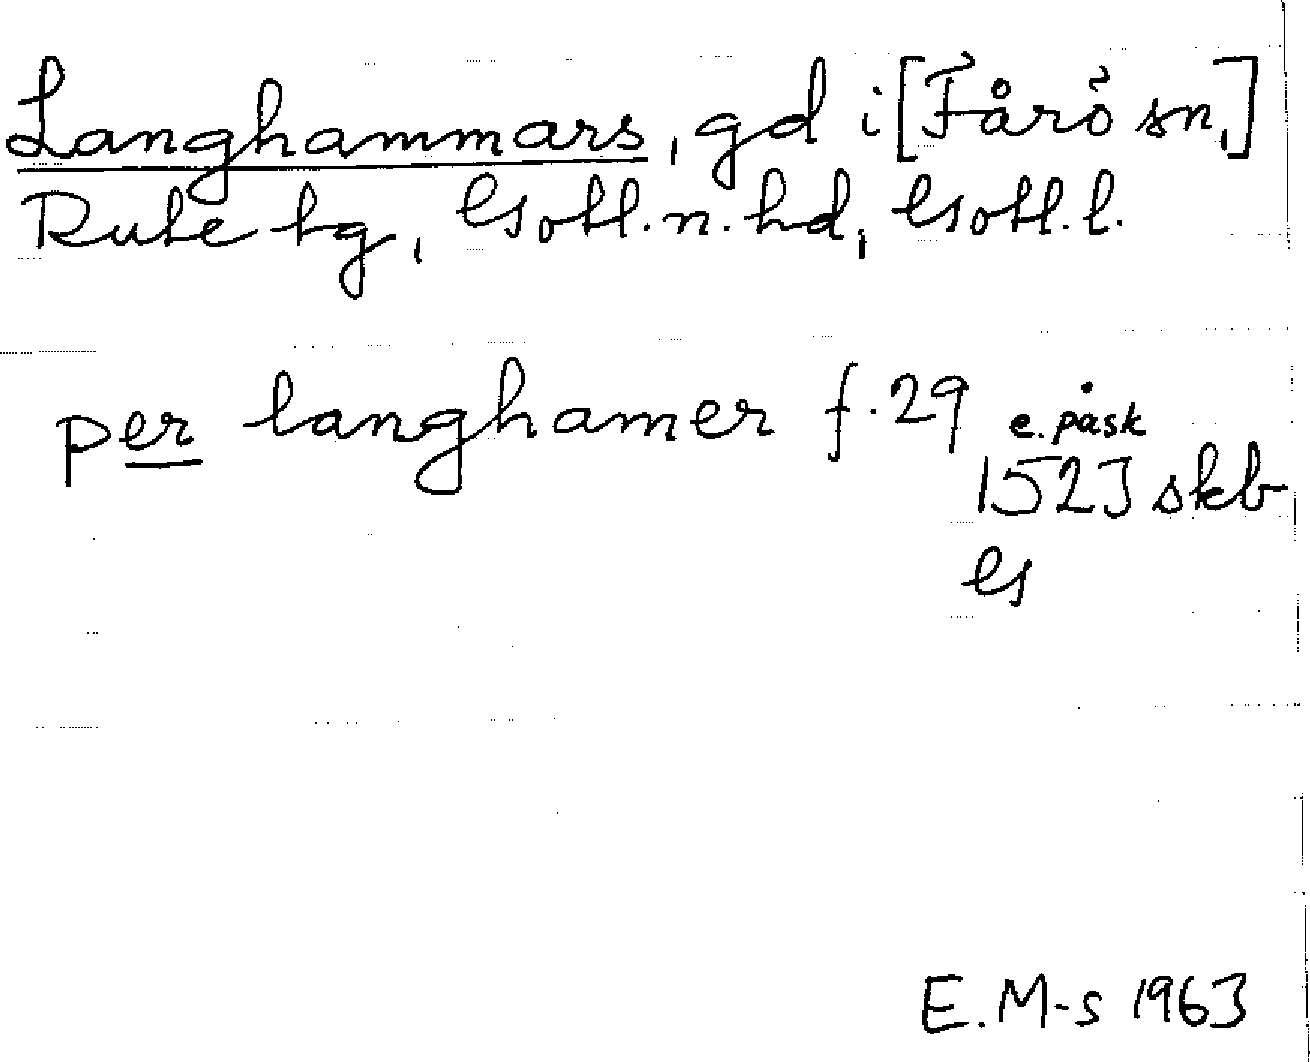 Langhammars, gd i [Fårö sn,]
Rute tg, Gotl. n. hd, Gotl. l.
per langhamer f. 29 e. påsk
1523 skb
G
E. M-s 1963